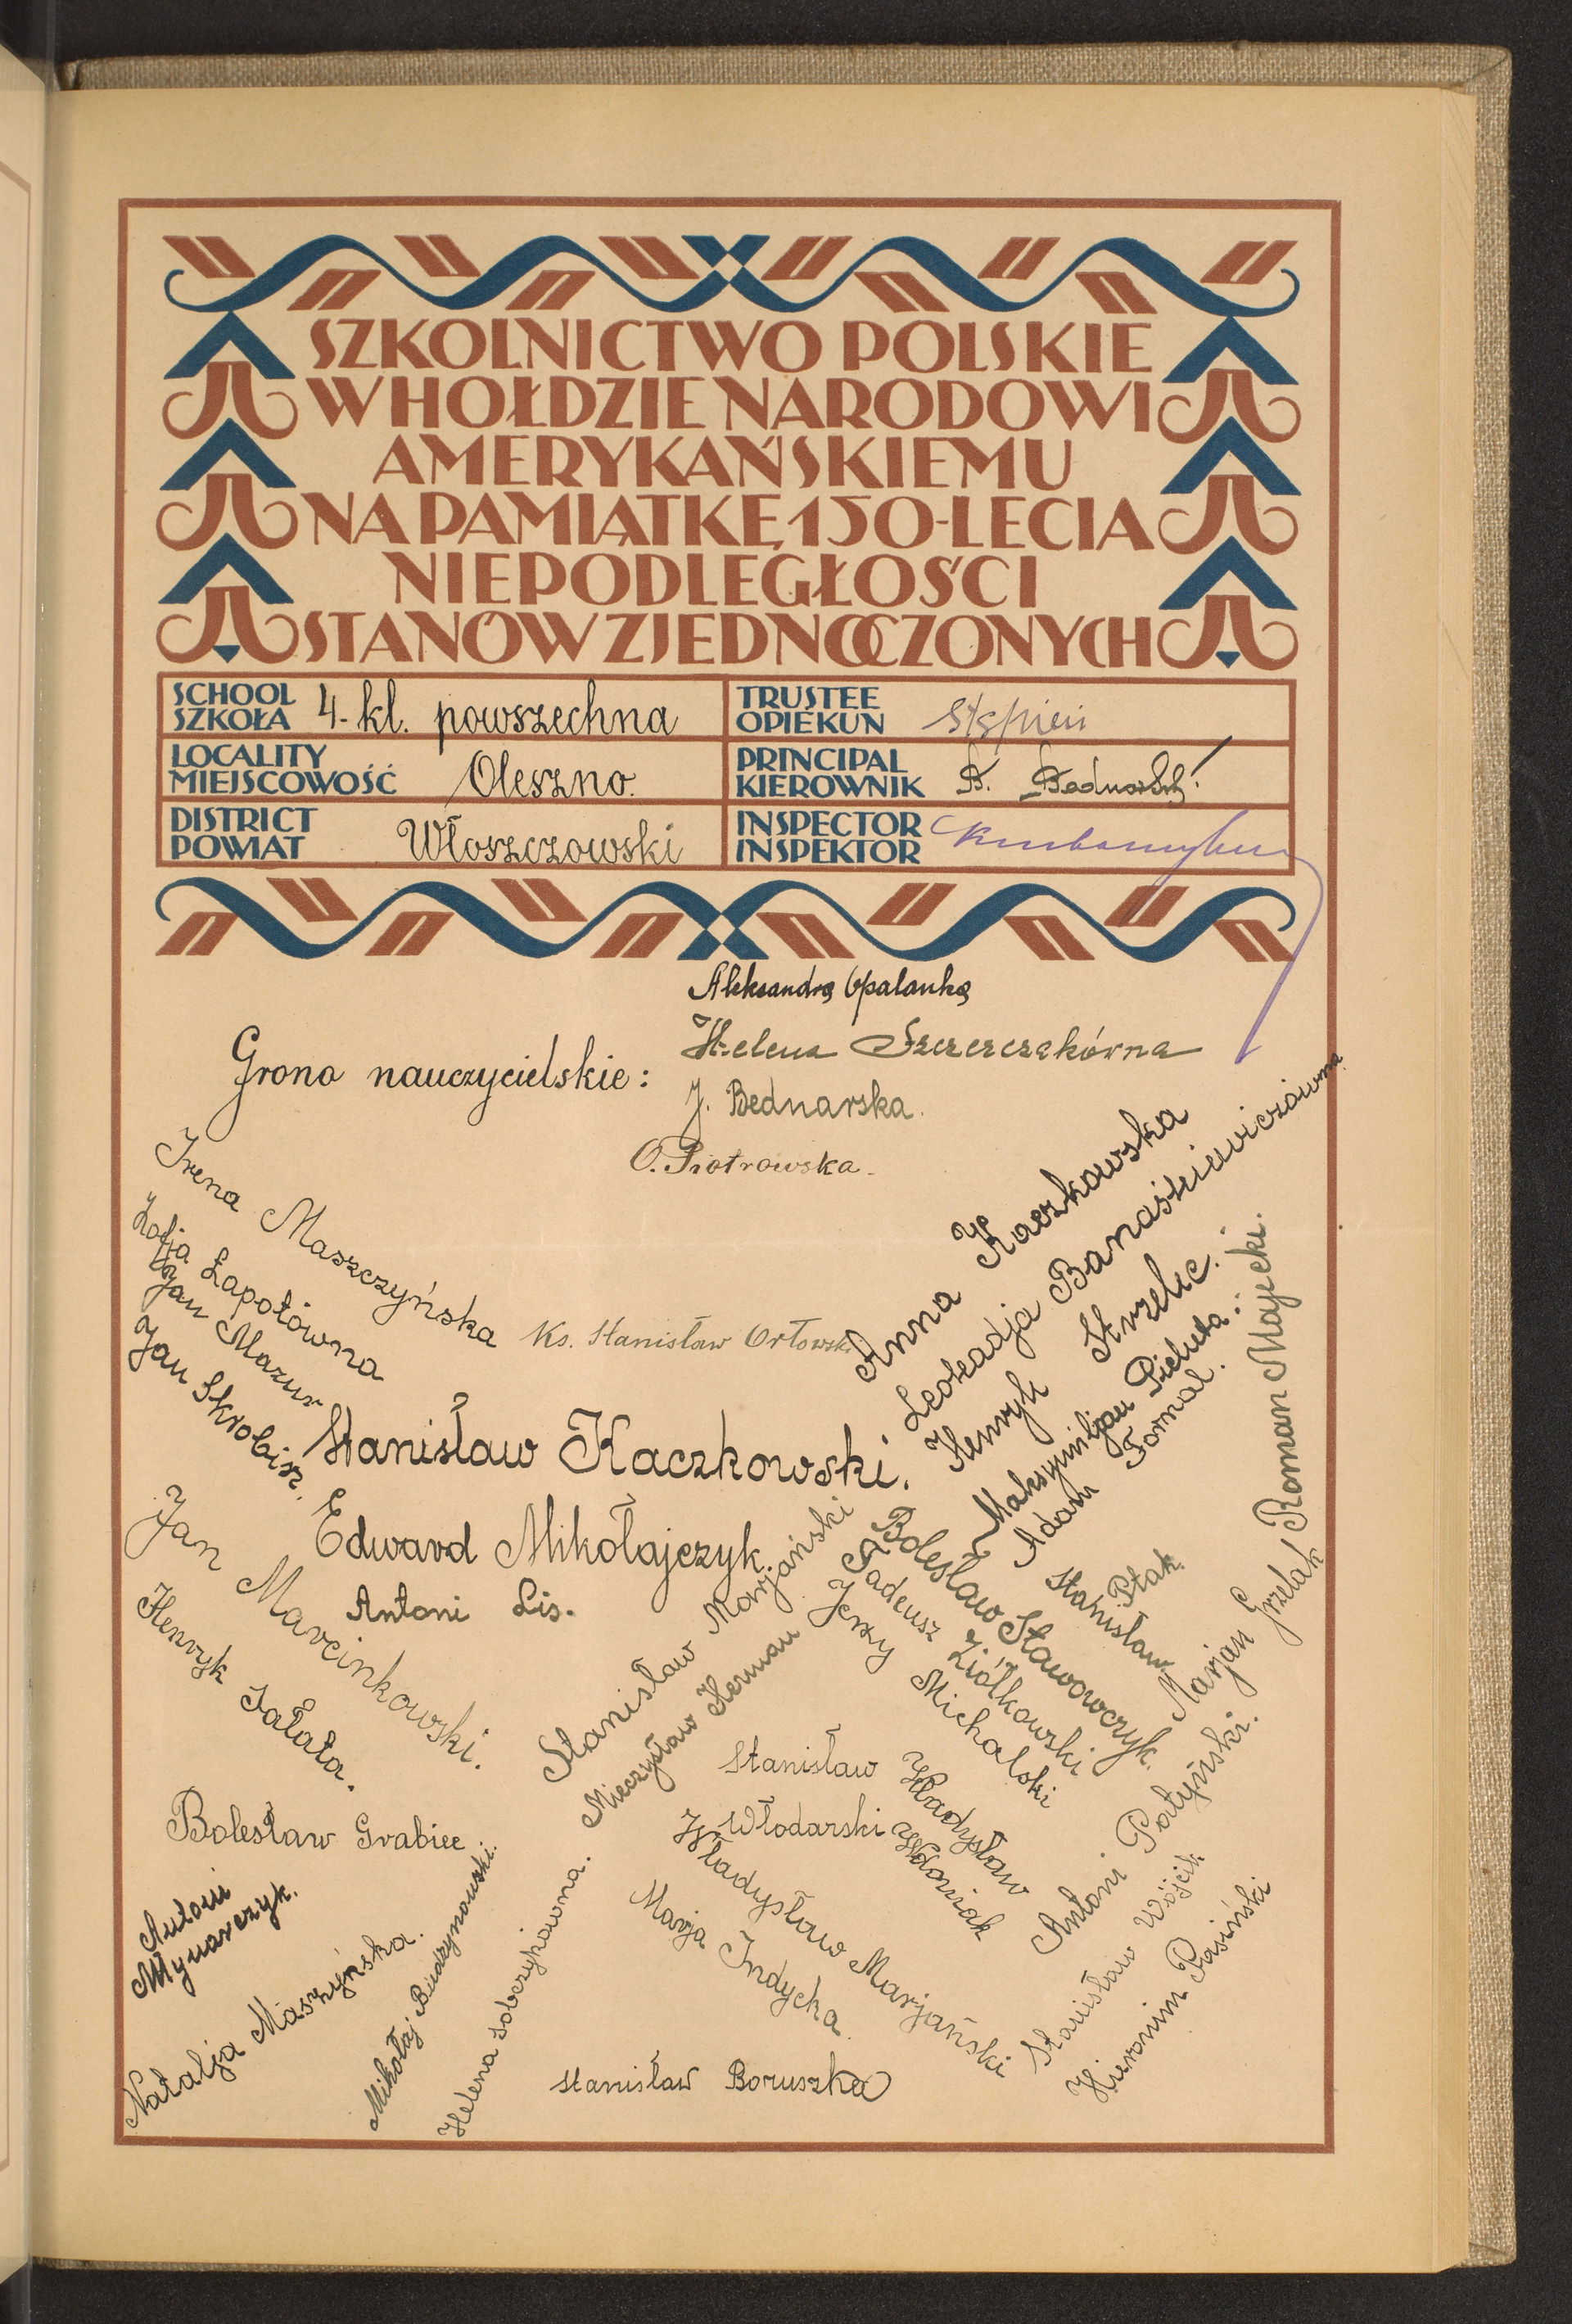 SZKOLNICTWO POLSKIE
W HOŁDZIE NARODOWI
AMERYKAŃSKIEMU
NA PAMIĄTKĘ 150-LECIA
NIEPODLEGŁOŚCI
STANÓW ZJEDNOCZONYCH
SCHOOL
SZKOŁA 4-kl. powszechna
TRUSTEE
OPIEKUN
LOCALITY
MIEJSCOWOŚĆ Oleszno.
PRINCIPAL
KIEROWNIK B. Bednarski
DISTRICT
POWIAT Włoszczowski
INSPECTOR
INSPEKTOR
Aleksandra Opalanka
Grono nauczycielskie:
Helena Szczerczakówna
J. Bednarska.
O. Piotrowska.
Irena Maszczyńska
Zofja Łapotówna
Jan Mazur
Jan Skrobisz.
Ks. Stanisław Orłowski
Anna Kaczkowska
Leokadja Banaśkiewiczówna
Henryk Strzelec.
Maksymiljan Pieluta.
Adam Fornal.
Roman Majecki.
Stanisław Kaczkowski.
Edward Mikołajczyk.
Antoni Lis.
Jan Marcinkowski.
Henryk Sałata.
Stanisław Marjański
Mieczysław Herman
Bolesław Sławowczyk.
Tadeusz Ziółkowski
Jerzy Michalski
Stanisław
Ptak.
Marjan Grzelak
Bolesław Grabiec.
Stanisław
Włodarski
Władysław
Wdowiak
Władysław Marjański
Marja Indycka.
Antoni Patyński.
Stanisław Wójcik
Hieronim Pasiński
Antoni
Mynarczyk.
Natalja Maszyńska.
Mikołaj Budzynowski.
Helena Sobczykówna.
Stanisław Boruszka